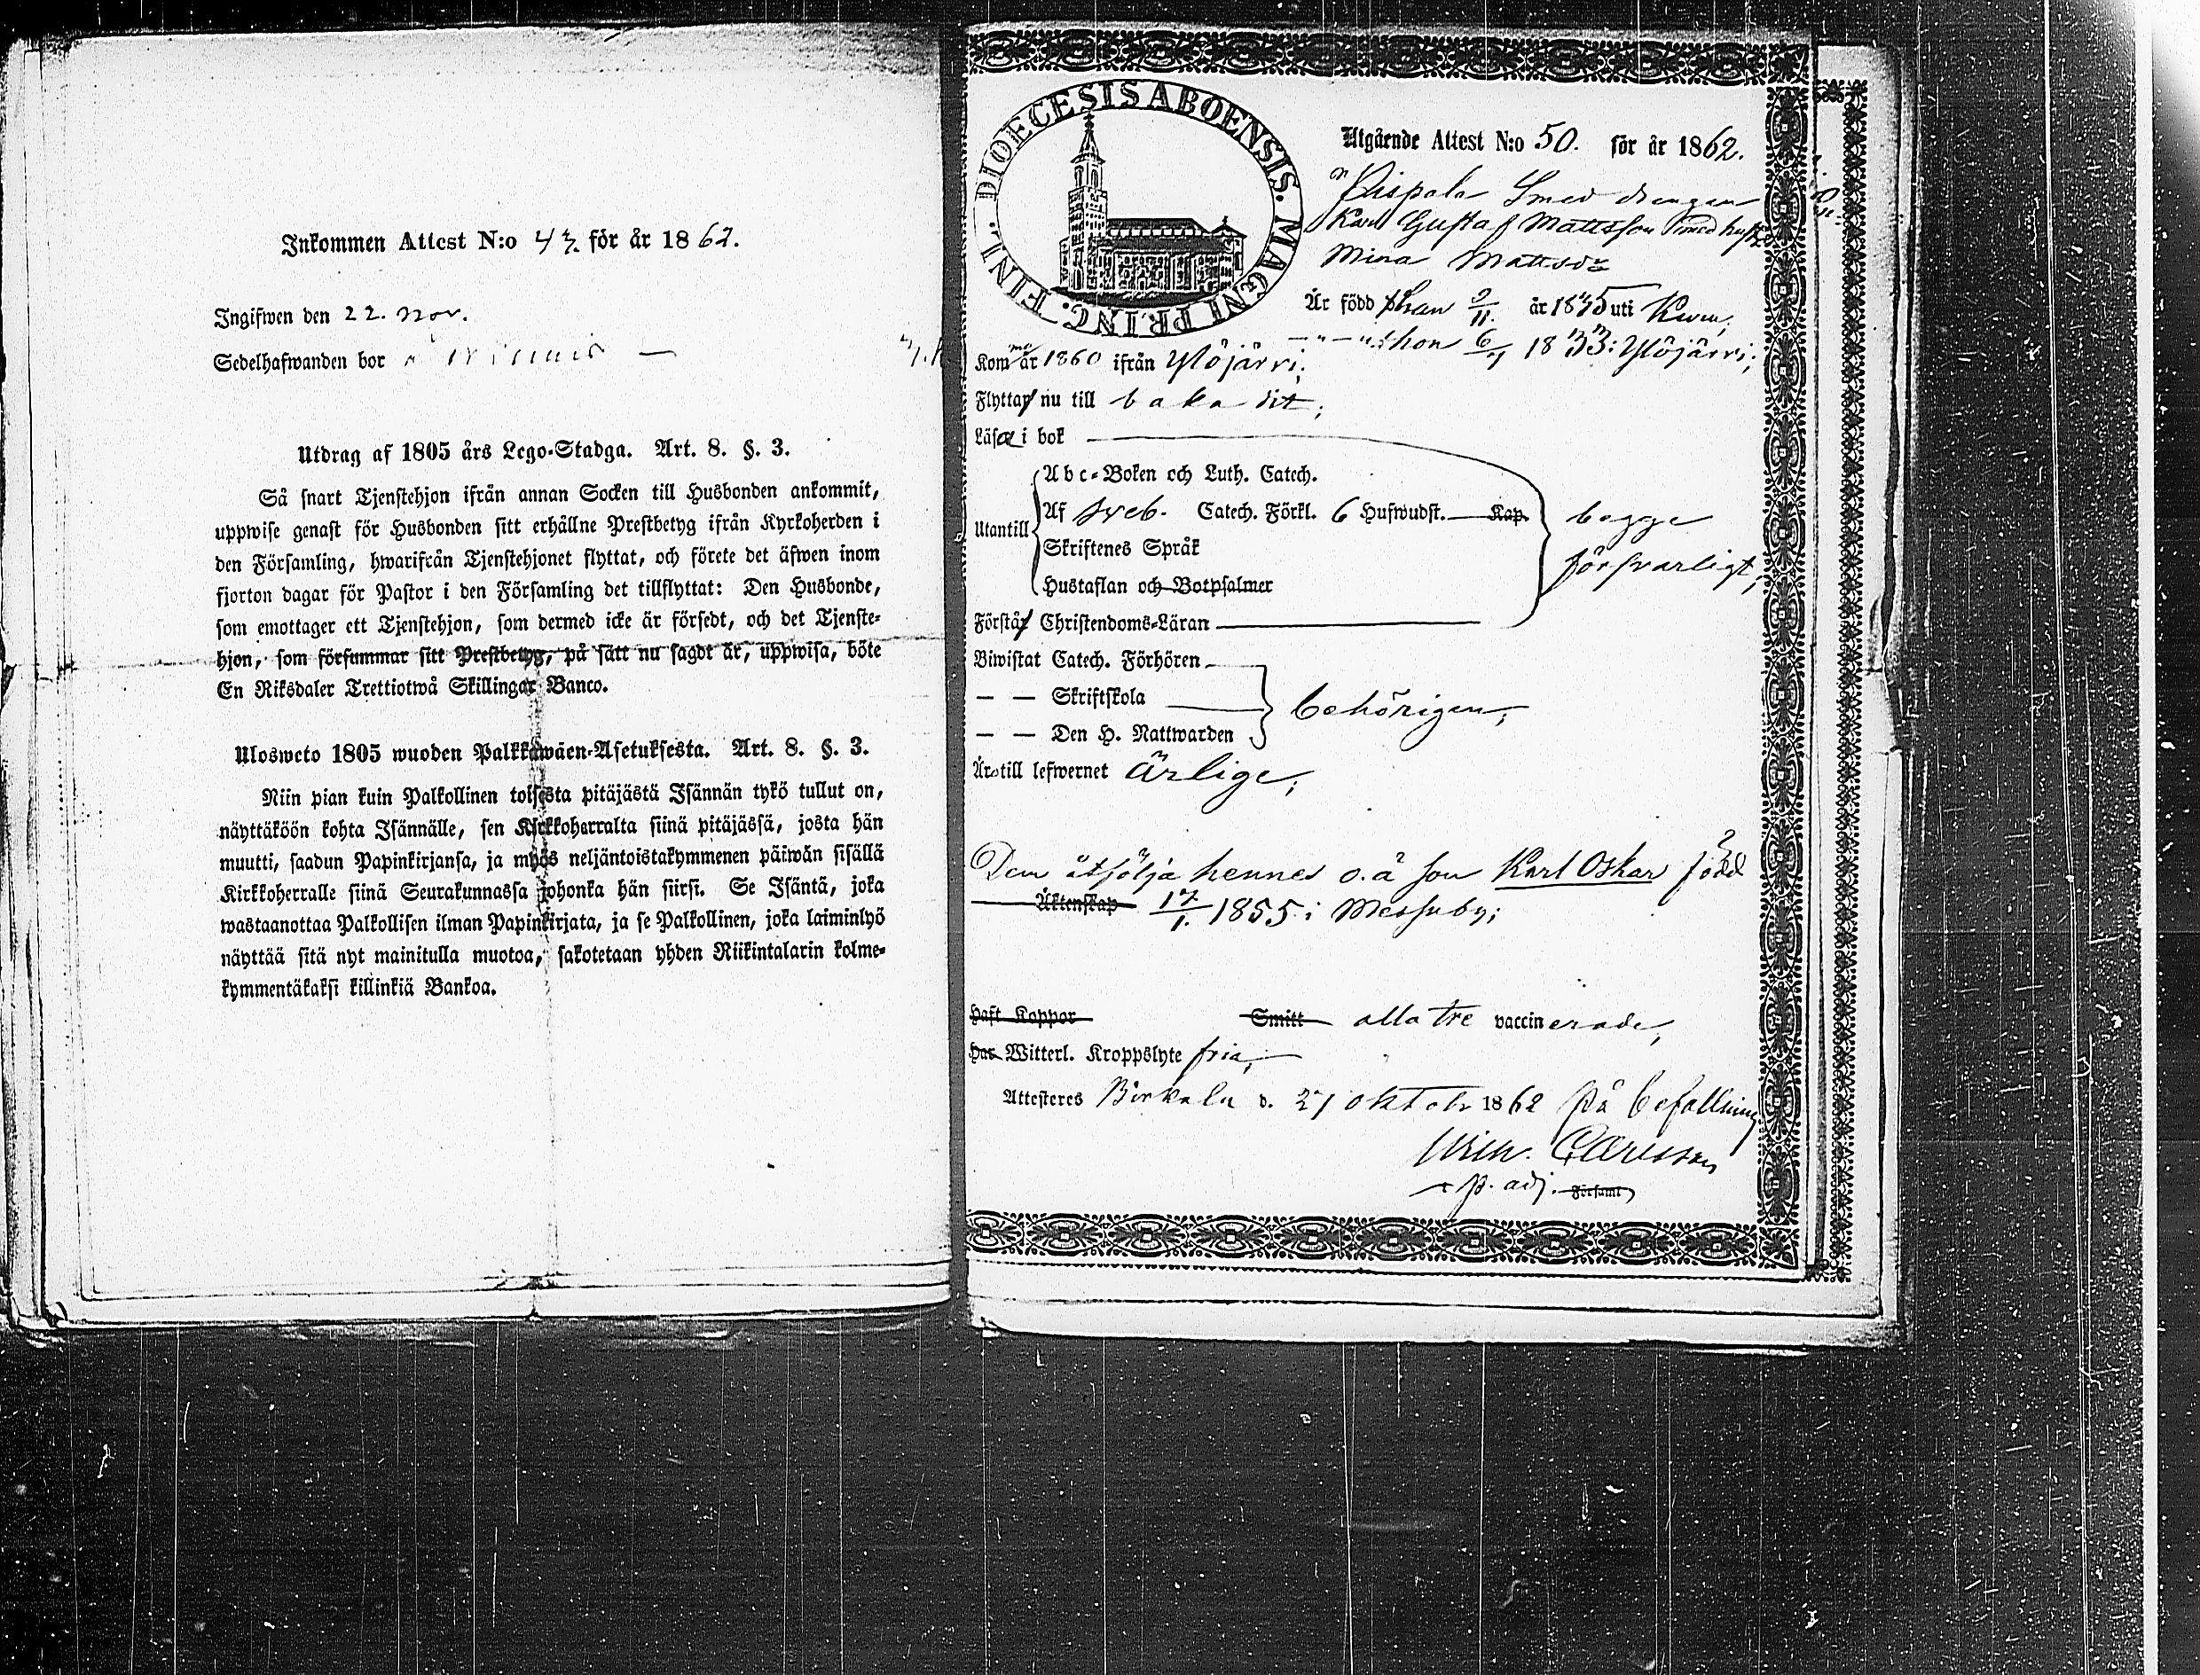 Inkommen Attest N:o 42 för år 1862.
Ingifwen den 22. Nov.
Sedelhafwanden bor
Utdrag af 1805 års Lego-Stadga. Art. 8. §. 3.
Så snart Tjenstehjon ifrån annan Socken till Husbonden ankommit,
uppwise genast för Husbonden sitt erhållne Prestbetyg ifrån Kyrkoherden i
den Församling, hwarifrån Tjenstehjonet flyttat, och förete det äfwen inom
fjorton dagar för Pastor i den Församling det tillflyttat: Den Husbonde,
som emottager ett Tjenstehjon, som dermed icke är försedt, och det Tjenste-
hjon, som försummar sitt Prestbetyg, på sätt nu sagdt är, uppwisa, böte
En Riksdaler Trettiotwå Skillingar Banco.
Ulosweto 1805 wuoden Palkkawäen-Asetuksesta. Art. 8. §. 3.
Niin pian kuin Palkollinen toisesta pitäjästä Isännän tykö tullut on,
näyttäköön kohta Isännälle, sen Kirkkoherralta siinä pitäjässä, josta hän
muutti, saadun Papinkirjansa, ja myös neljäntoistakymmenen päiwän sisällä
Kirkkoherralle siinä Seurakunnassa johonka hän siirsi. Se Isäntä, joka
wastaanottaa Palkollisen ilman Papinkirjata, ja se Palkollinen, joka laiminlyö
näyttää sitä nyt mainitulla muotoa, sakotetaan yhden Riikintalarin kolme-
kymmentäkaksi killinkiä Bankoa.
DIOECESIS ABOENSIS. MAGNI PRINC. FINL.
Utgående Attest N:o 50. för år 1862.
Pispala Smed drengen
Karl Gustaf Mattsson med hust.
Mina Mattsdr
Är född han 9/11 år 1835 uti Kumo,
hon 6/7 1833 i Ylöjärvi;
Kommo år 1860 ifrån Ylöjärvi;
Flytta nu till baka dit;
Läsa i bok
Abc-Boken och Luth. Catech.
Utantill Af Sveb. Catech. Förkl. 6 Hufwudst. Kap. begge
Skriftenes Språk försvarligt;
Hustaflan och Botpsalmer
Förstå Christendoms-Läran
Biwistat Catech. Förhören
— — Skriftskola behörigen;
— — Den H. Nattwarden
Äro till lefwernet ärlige;
Dem åtfölja hennes o. ä son Karl Oskar född
Äktenskap 17/1. 1855 i Messuby;
Haft Koppor Smitt alla tre vaccinerade,
Har Witterl. Kroppslyte fria;
Attesteres Birkala d. 27 oktobr 1862 På befallning
Carlsson
p. adj. Församl